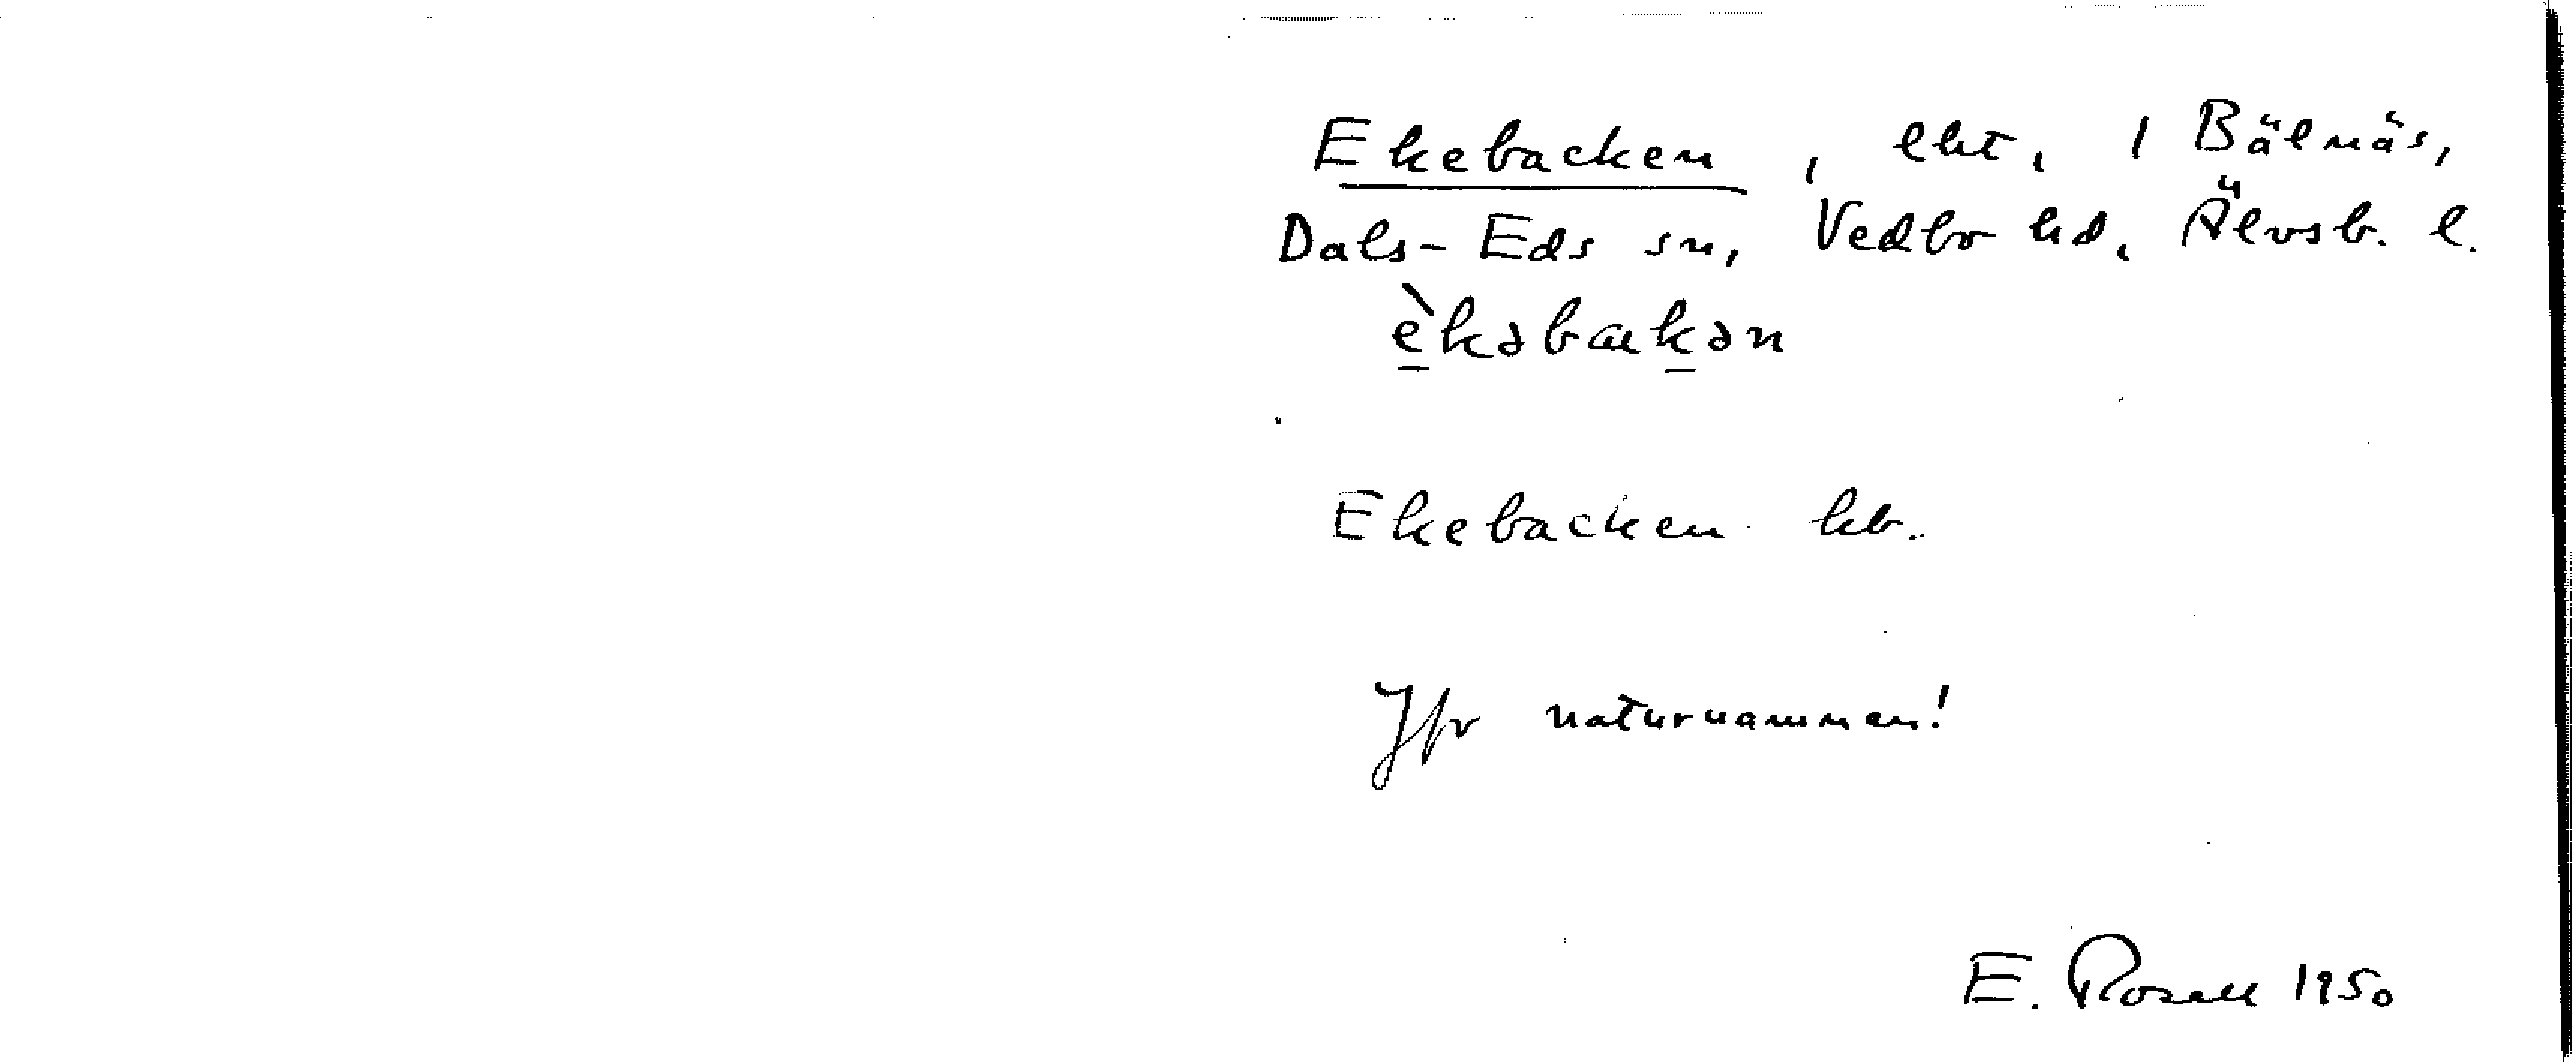 Ekebacken, lht, 1 Bälnäs,
Dals-Eds sn, Vedbo hd, Älvsb. l.
è̱kəbaḵən
Ekebacken kb.
Jfr naturnamnen!
E. Rosell 1950